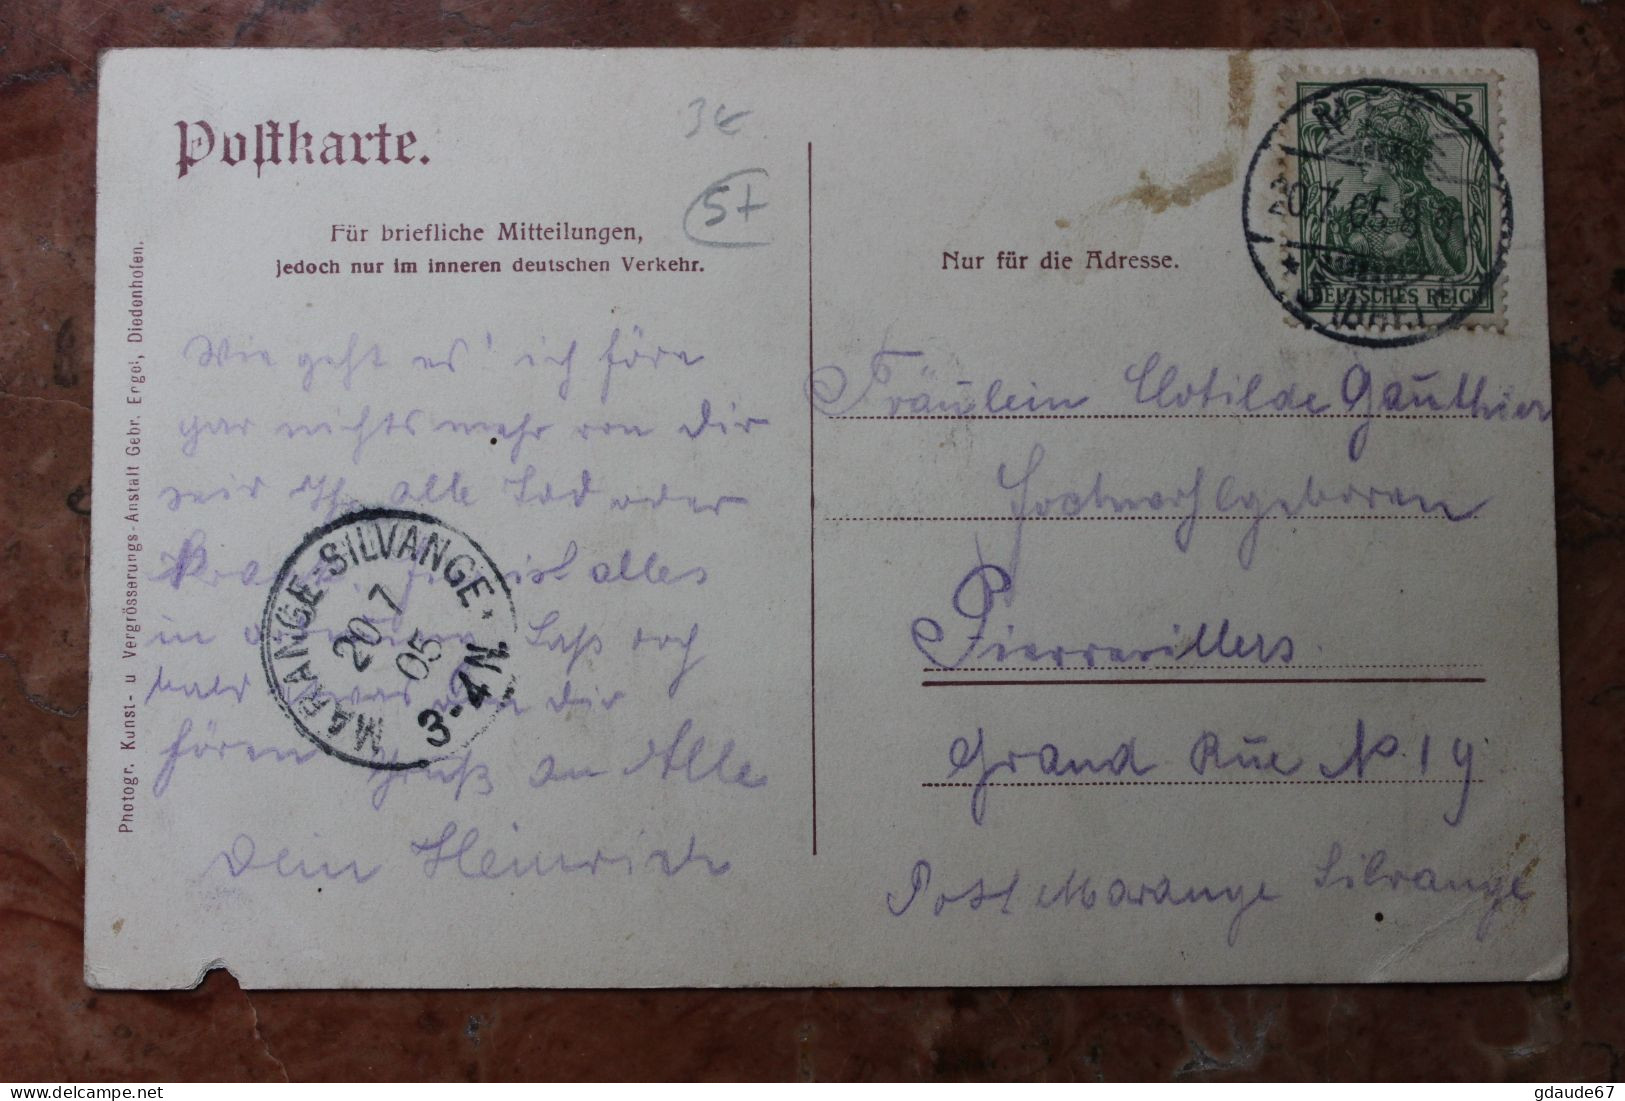 Postkarte.
3€
5+
Für briefliche Mitteilungen,
jedoch nur im inneren deutschen Verkehr.
Photogr. Kunst- u Vergrösserungs-Anstalt Gebr. Ergol, Diedenhofen.
Wie geht es' ich före
gar nichts mehr von Dir
seid Ihr alle Tod oder
ist alles
in Laß doch
bald etwas von Dir
hören Gruß an Alle
Dein Heinrich
MARANGE-SILVANGE
20 7
05
3-4N.
Nur für die Adresse.
5
20.7.05.8
(BHF.)
DEUTSCHES REICH
Fräulein Clotilde Gauthier
Hochwohlgeboren
Pierrevillers.
Grand Rue No. 19
Post Marange Silvange
gdaude67